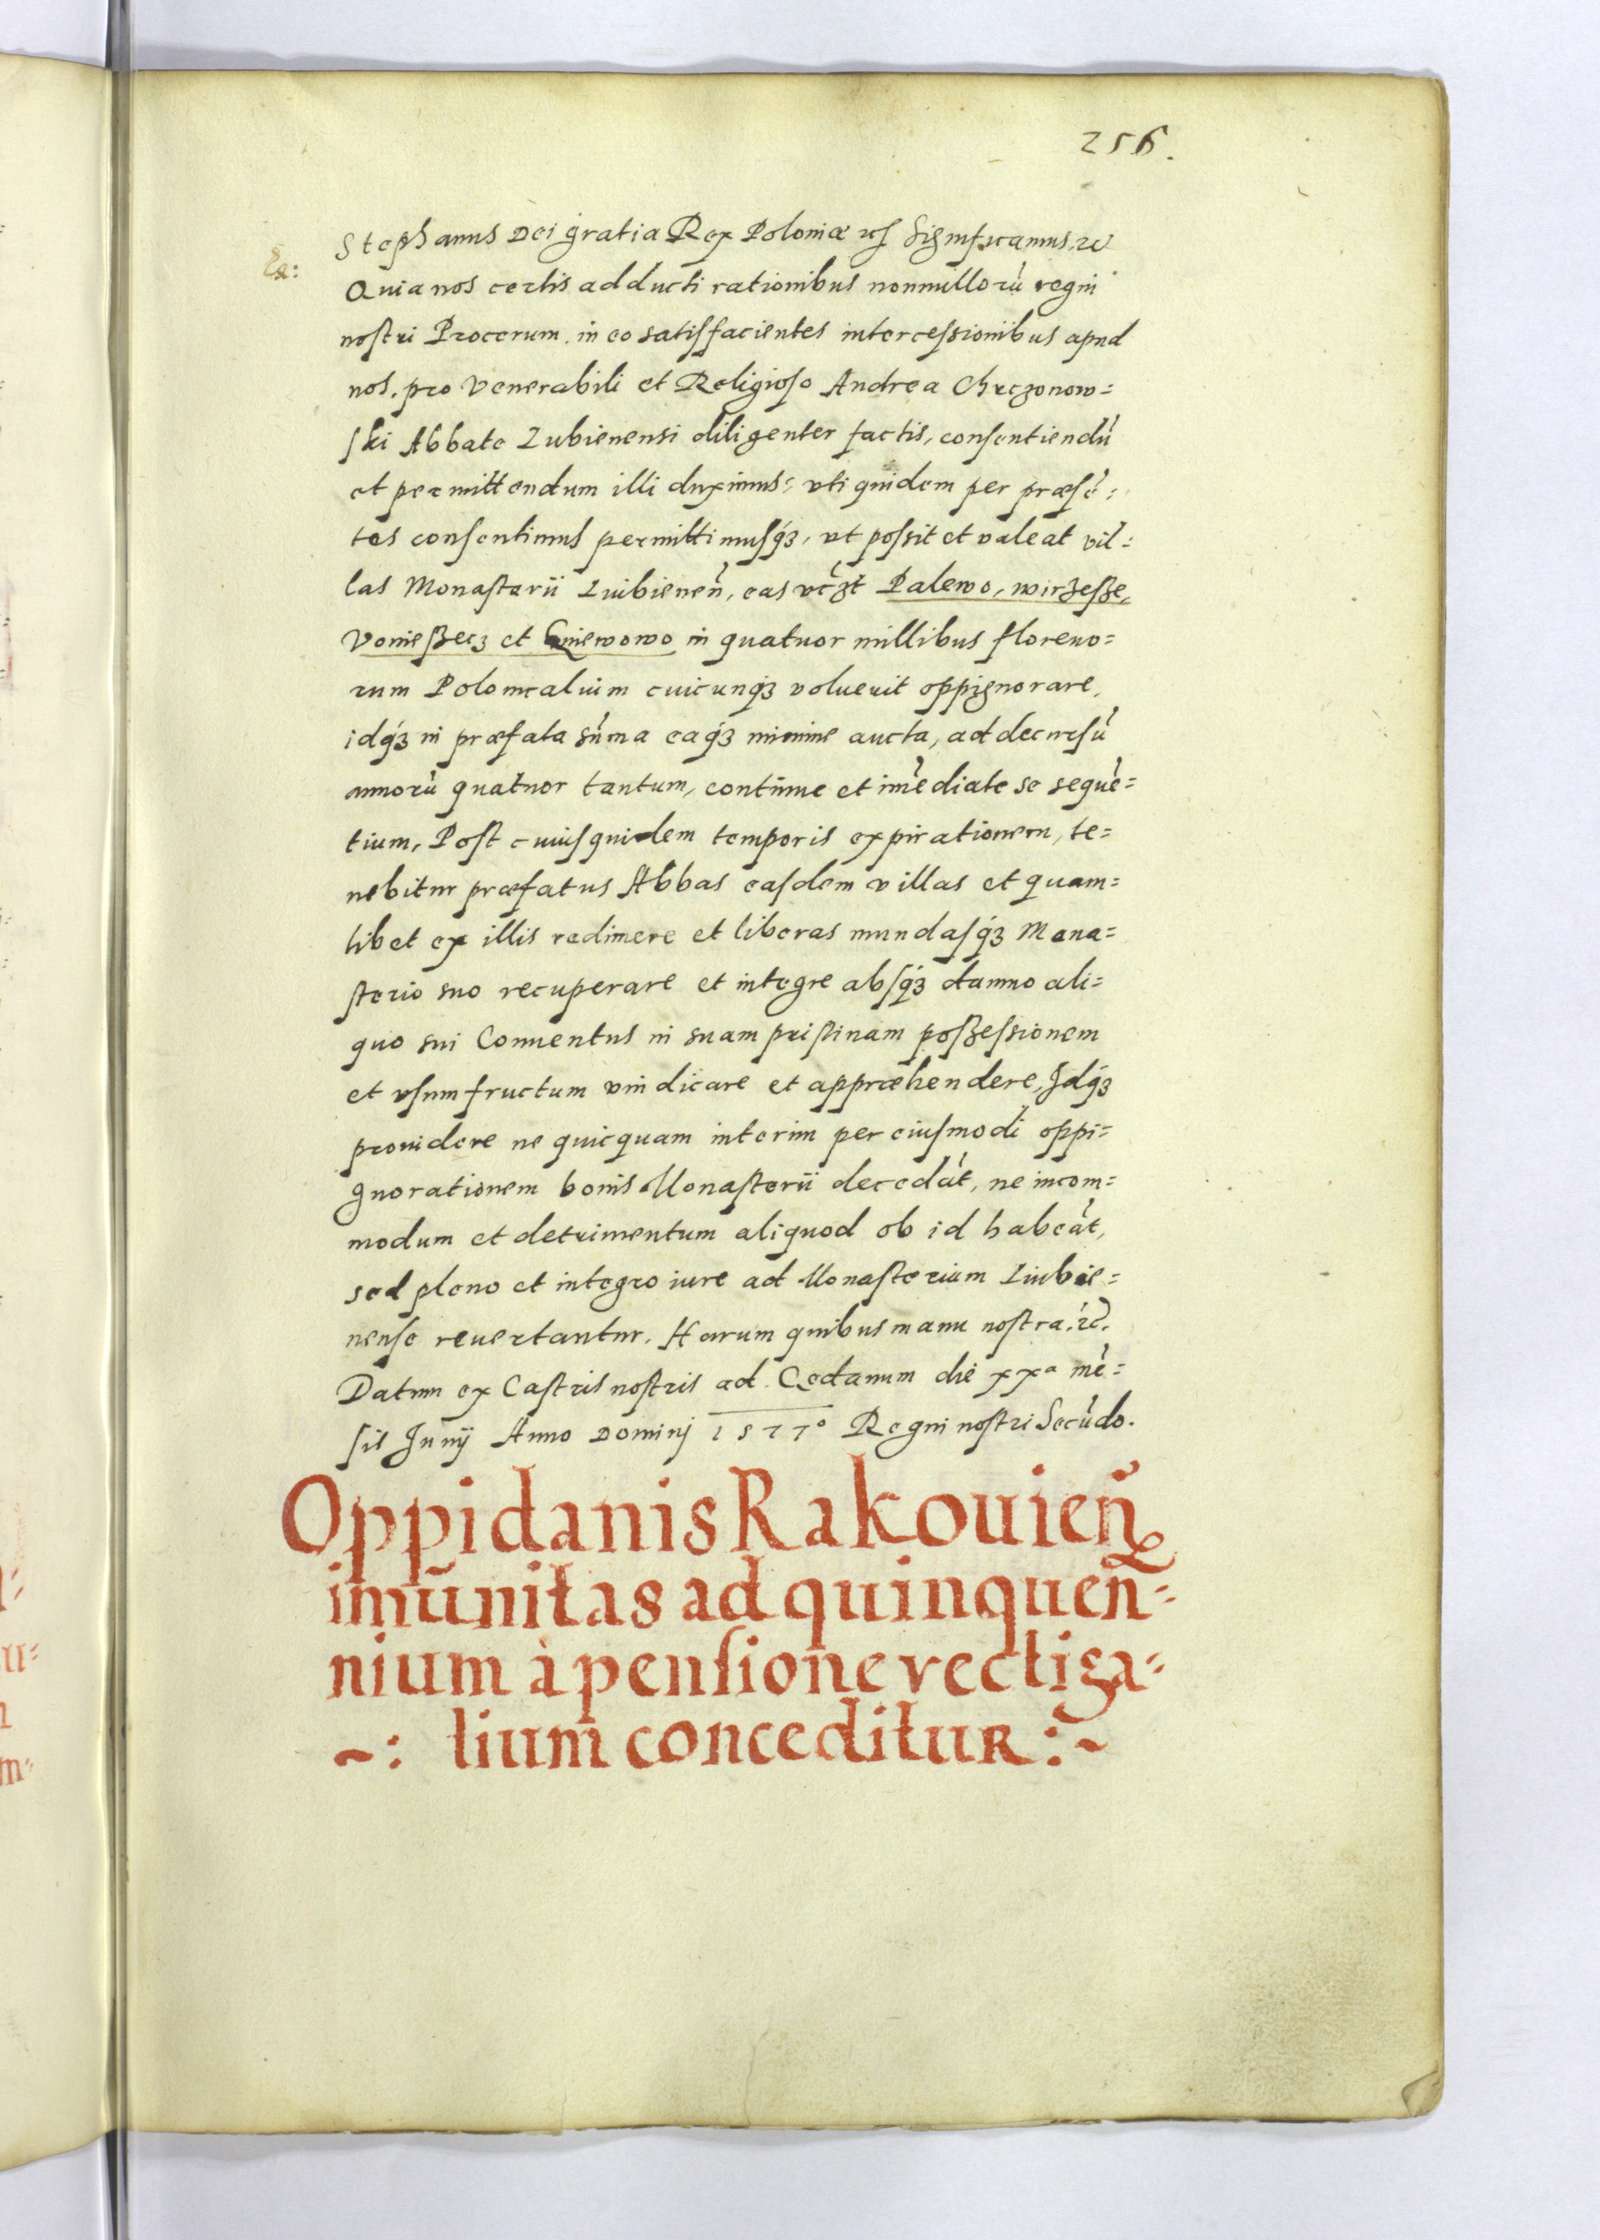 256.
Stephanus Dei gratia Rex Poloniæ etc Significamus, etc
Quia nos certis adducti rationibus nonnullorū regni
nostri Procerum in eo satisfacientes intercessionibus apud
nos, pro Venerabili et Religioso Andrea Chrczonow=
ski Abbate Lubienensi diligenter factis, consentiendū
et permittendum illi duximus, vti quidem per præsē=
tes consentimus permittimusq3, vt possit et valeat vil=
las Monasterii Liubieneñ, eas vc3t Palewo, wirzesze,
Vonieszecz et Gniewowo in quatuor millibus floreno=
rum Polonicalium cuicunq3 voluerit oppignorare,
idq3 in præfata sūma eaq3 minime aucta, ad decursū
annorū quatuor tantum, continue et imēdiate se sequē=
tium, Post cuiusquidem temporis expirationem, te=
nebitur præfatus Abbas easdem villas et quam=
libet ex illis redimere et liberas mundasq3 Mona=
sterio suo recuperare et integre absq3 damno ali=
quo sui Conuentus in suam pristinam possessionem
et vsumfructum vindicare et appræhendere, Idq3
prouidere ne quicquam interim per eiusmodi oppi=
gnorationem bonis Monasterii decedāt, ne incom=
modum et detrimentum aliquod ob id habeāt,
sed pleno et integro iure ad Monasterium Liubie=
nense reuertantur. Harum quibus manu nostra. etc.
Datum ex Castris nostris ad Gedanum die xxª mē=
sis Junij Anno Dominj 1577º Regni nostri Secūdo.
Oppidanis Rakouieñ
imūnitas ad quinqueñ=
nium à pensione vectiga=
~: lium conceditur :~